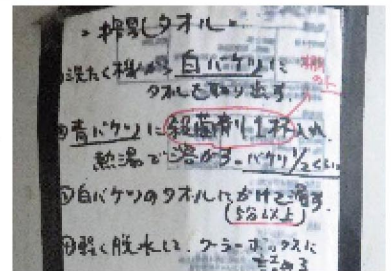 ・搾乳タオル・
①洗たく機から白バケツに
タオルを取り出す。
棚の上
②青バケツに殺菌剤1杯入れ
熱湯で溶かす。バケツ1/2くらい
③白バケツのタオルにかけて消す。
(5分以上)
④軽く脱水して、クーラーボックスに